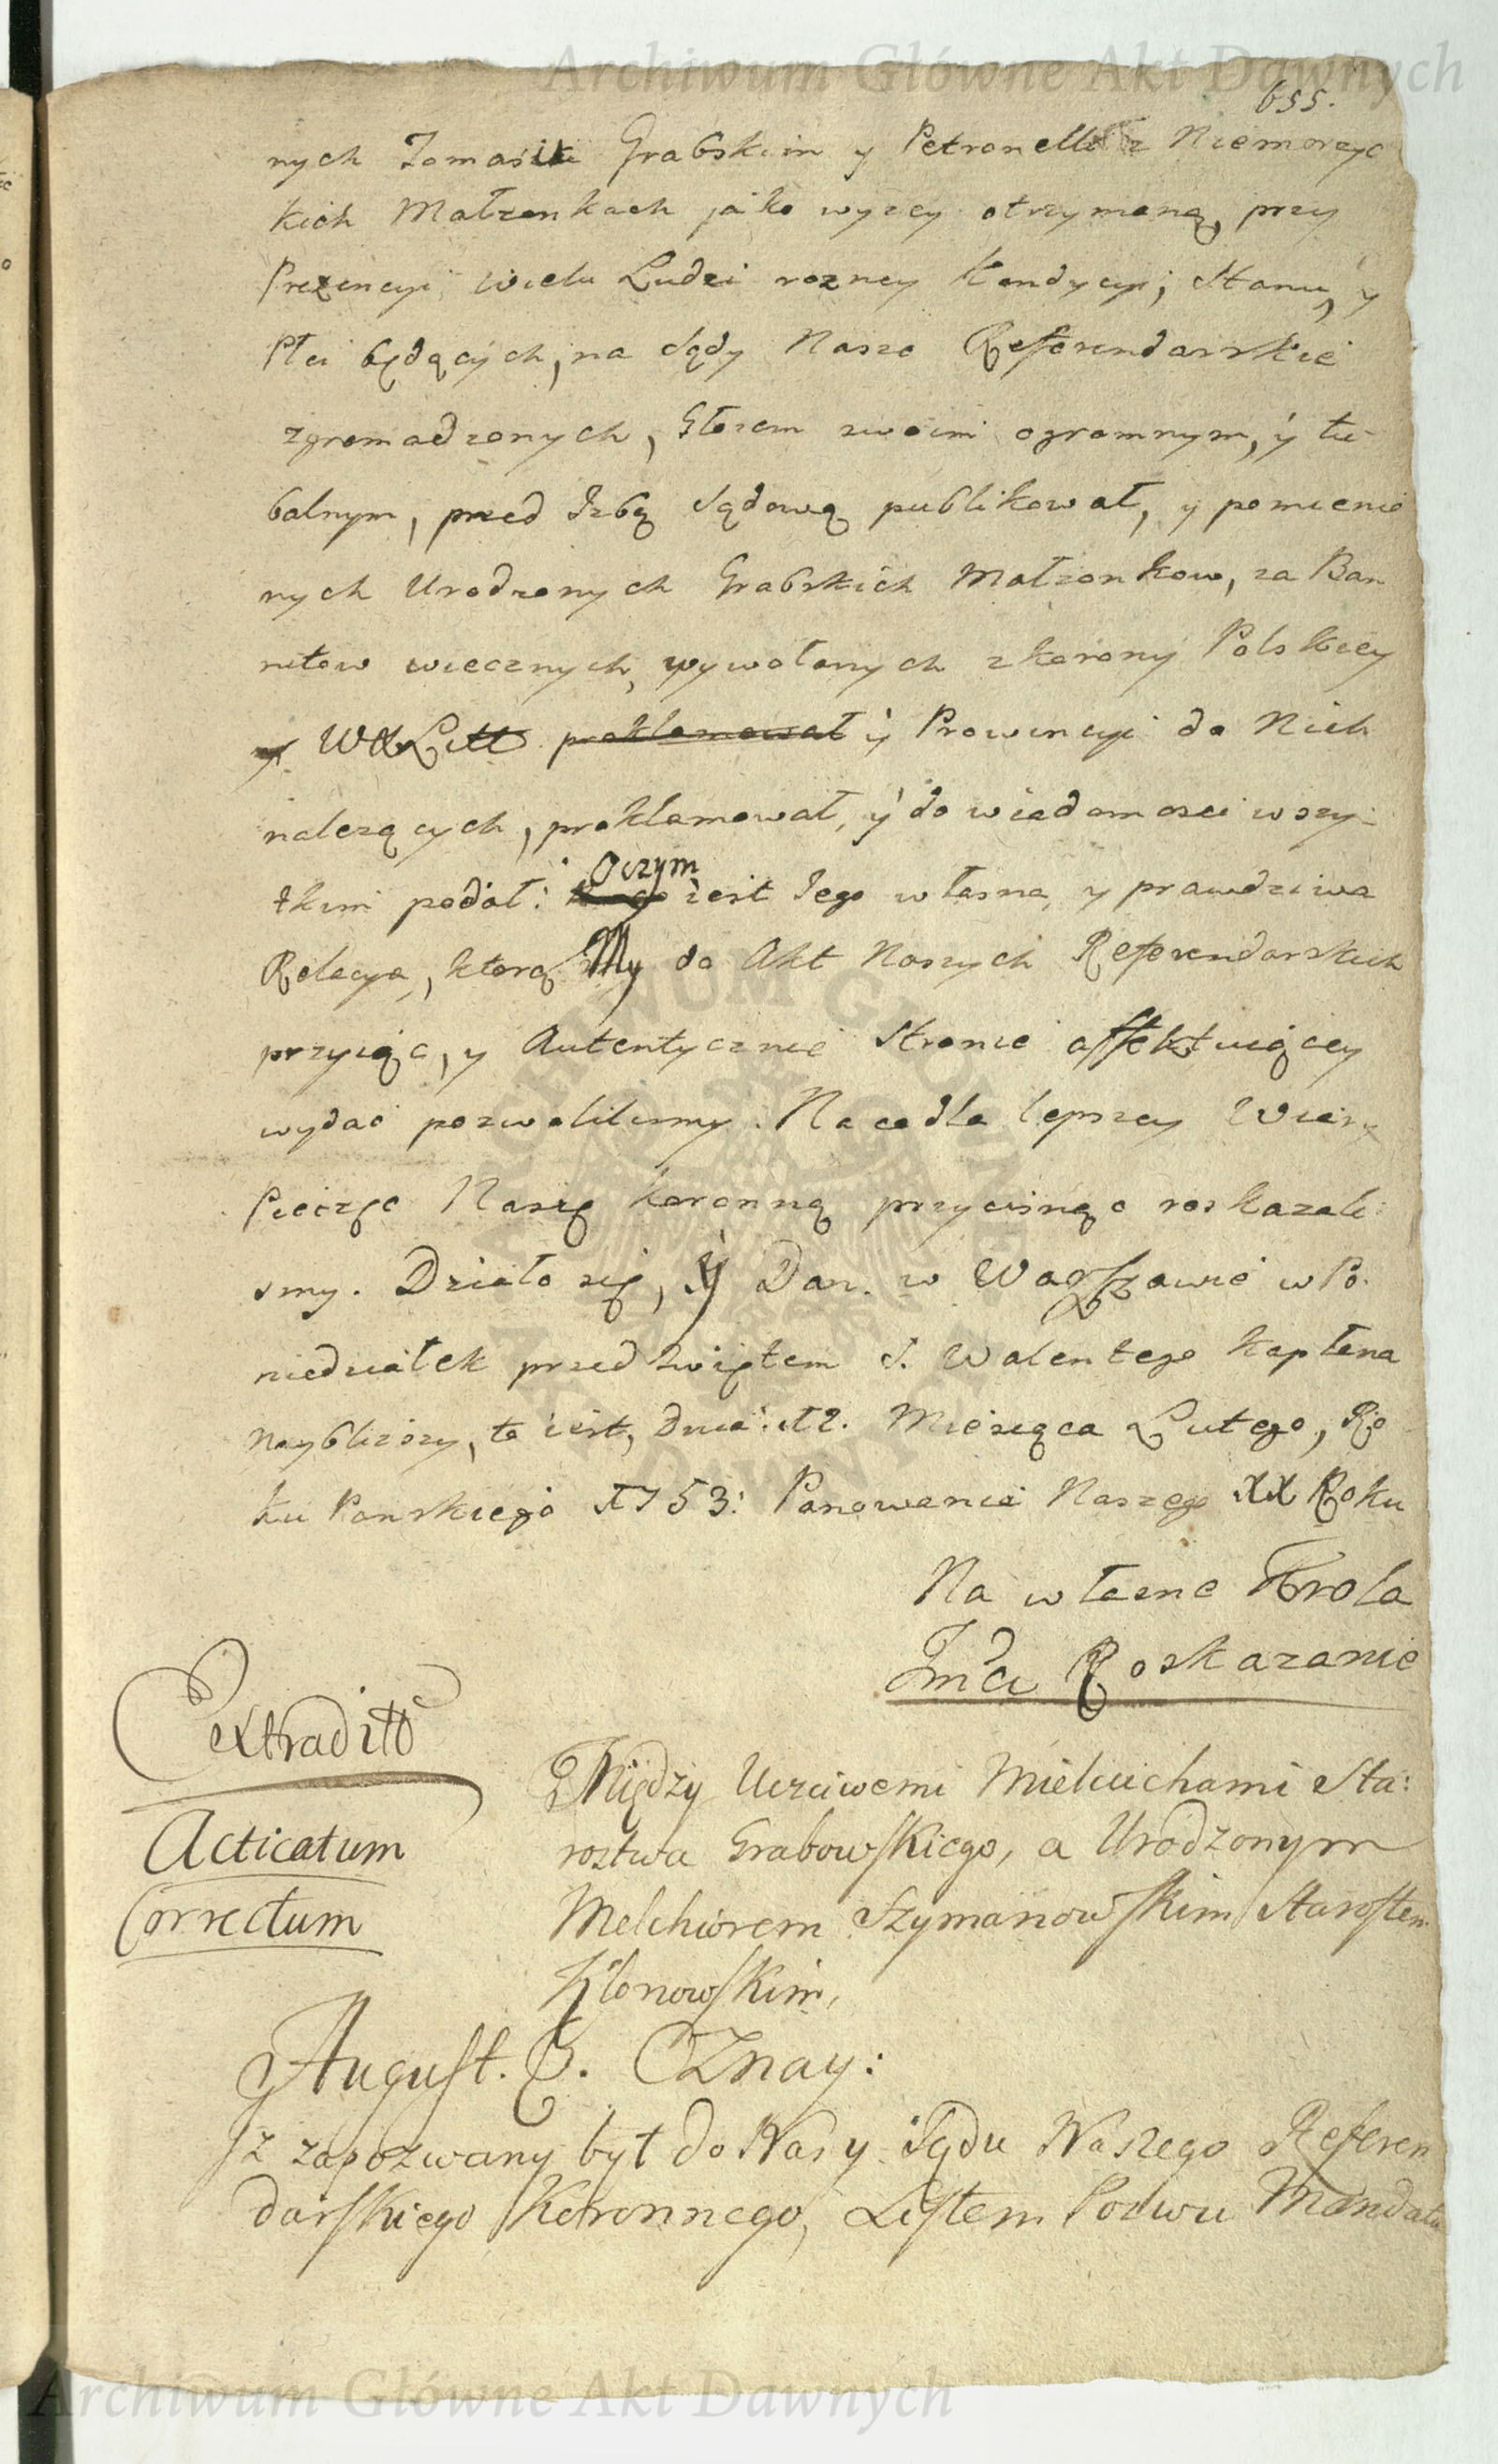 Archiwum Główne Akt Dawnych
655.
nych Tomaszu Grabskim y Petronelli z Niemorzyc
kich Małzonkach jako wyzey otrzymaną, przy
Prezencyi wielu Ludzi rozney Kondycyi, Stanu, y
Płci będących, na Sądy Nasze Referendarskie
zgromadzonych, Głosem swoim ogromnym, y tu-
balnym, przed Izbą Sądową publikował, y pomienio
nych Urodzonych Grabskich Małzonkow, za Ban
nitow wiecznych, wywołanych z Korony Polskiey
y WXLitt proklamował y Prowincyi do Nich
nalezących, proklamował, y do wiadomosci wszy-
tkim podał: Oczym iest Jego własna, y prawdziwa
Relacya, ktorą My do Akt Naszych Referendarskich
przyiąc, y Autentycznie Stronie affektuiącey
wydać pozwolilismy. Na co dla lepszey Wiary
Pieczęc Naszę Koronną przycisnąc roskazali:
smy. Działo się, y Dan. w Warszawie w Po-
niedziałek przed Swiętem S. Walentego Kapłana
nayblizszy, to iest, Dnia: 12. Miesiąca Lutego, Ro
ku Panskiego 1753: Panowania Naszego XX Roku
Na własne Krola
Jmci Roskazanie
extradit
Acticatum
Correctum
Między Uczciwemi Mielcuchami Sta:
rostwa Grabowskiego, a Urodzonym
Melchiorem Szymanowskim Starostem
Klonowskim,
August. 3. Oznay:
Iz zapozwany był do Nas y Sądu Naszego Referen
darskiego Koronnego, Listem Pozwu Mandatu
Archiwum Główne Akt Dawnych